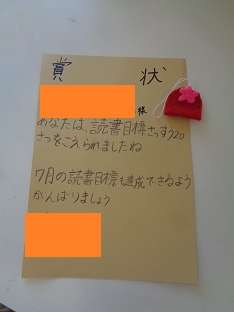 賞状
様
あなたは、読書目標さっすう20
さつをこえられましたね
7月の読書目標も達成できるよう
がんばりましょう